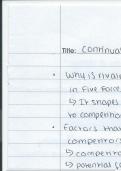 Title: Continua
• Why is rival
in Five Force
↳ It shapes
to competito
• Factors tha
competitors
↳ competito
↳ potential